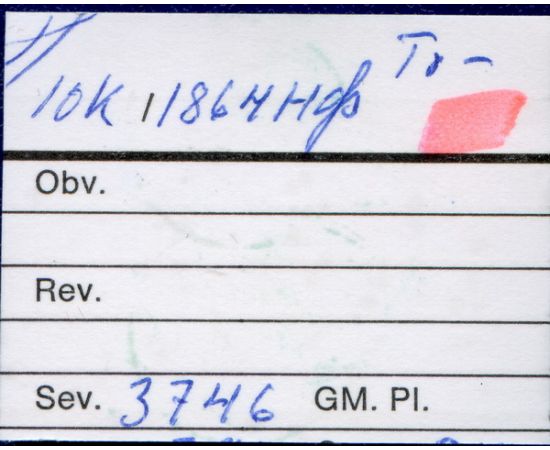 10К 1864 НФ
Obv.
Rev.
Sev. 3746 GM. Pl.